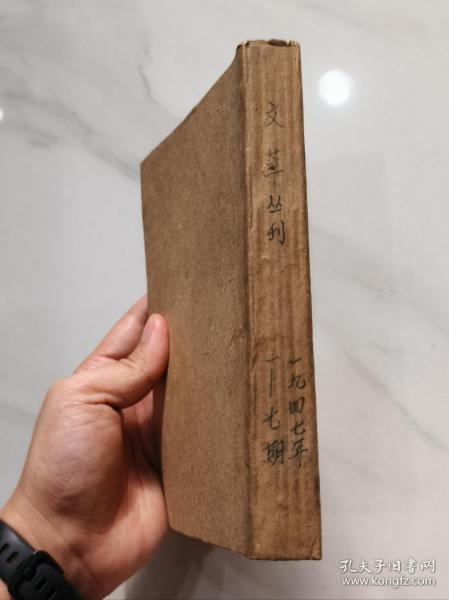 文萃丛刊
一九四七年
一—七期
孔夫子旧书网
www.kongfz.com